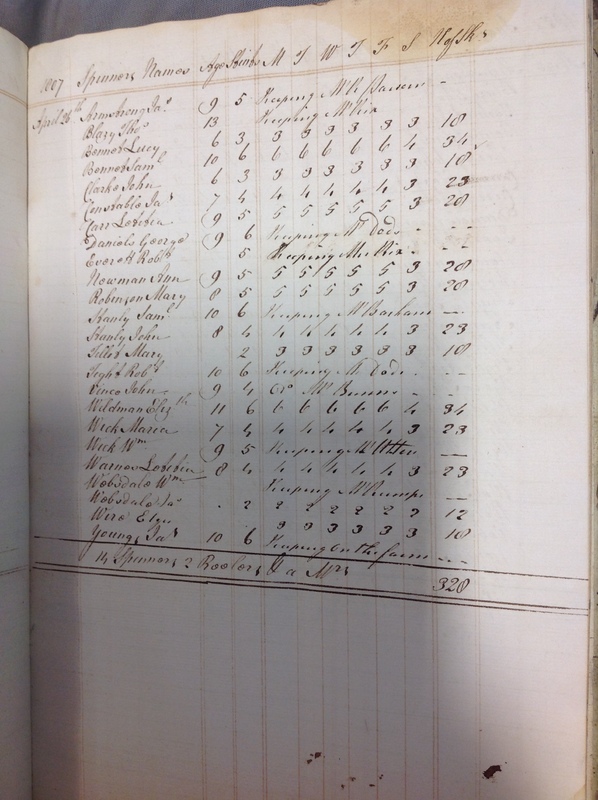 1807 Spinners Names Age Stints M T W T F S No of Sks
April 26th Armstrong Jas 9 5 Keeping Mr Parsons —
Blazy Thos 13 Keeping Mr Rix
Bennet Lucy 6 3 3 3 3 3 3 3 18
Bennet Saml 10 6 6 6 6 6 6 4 34
Clarke John 6 3 3 3 3 3 3 3 18
Constable Jas 7 4 4 4 4 4 4 3 23
Carr Letitia 9 5 5 5 5 5 5 3 28
Daniels George 9 6 Keeping Mr Dods - - -
Everett Robt 5 Keeping Mr Rix - —
Newman Ann 9 5 5 5 5 5 5 3 28
Robinson Mary 8 5 5 5 5 5 5 3 28
Stanly Saml 10 6 Keeping Mr Barham —
Stanly John 8 4 4 4 4 4 4 3 23
Tillet Mary 2 3 3 3 3 3 3 18
Tight Robt 10 6 Keeping Mr Dods - —
Vince John 9 4 Do Mr Bunns - —
Wildman Elizth 11 6 6 6 6 6 6 4 34
Wick Maria 7 4 4 4 4 4 4 3 23
Wick Wm 9 5 Keeping Mr Utten —
Warnes Letitia 8 4 4 4 4 4 4 3 23
Wobsdale Wm Keeping Mr Crumps —
Wobsdale Jas - 2 2 2 2 2 2 2 12
Were Eliz 3 3 3 3 3 3 18
Youngs Jas 10 6 Keeping on the farm - - -
14 Spinners 2 Reelers & a Mrs 328